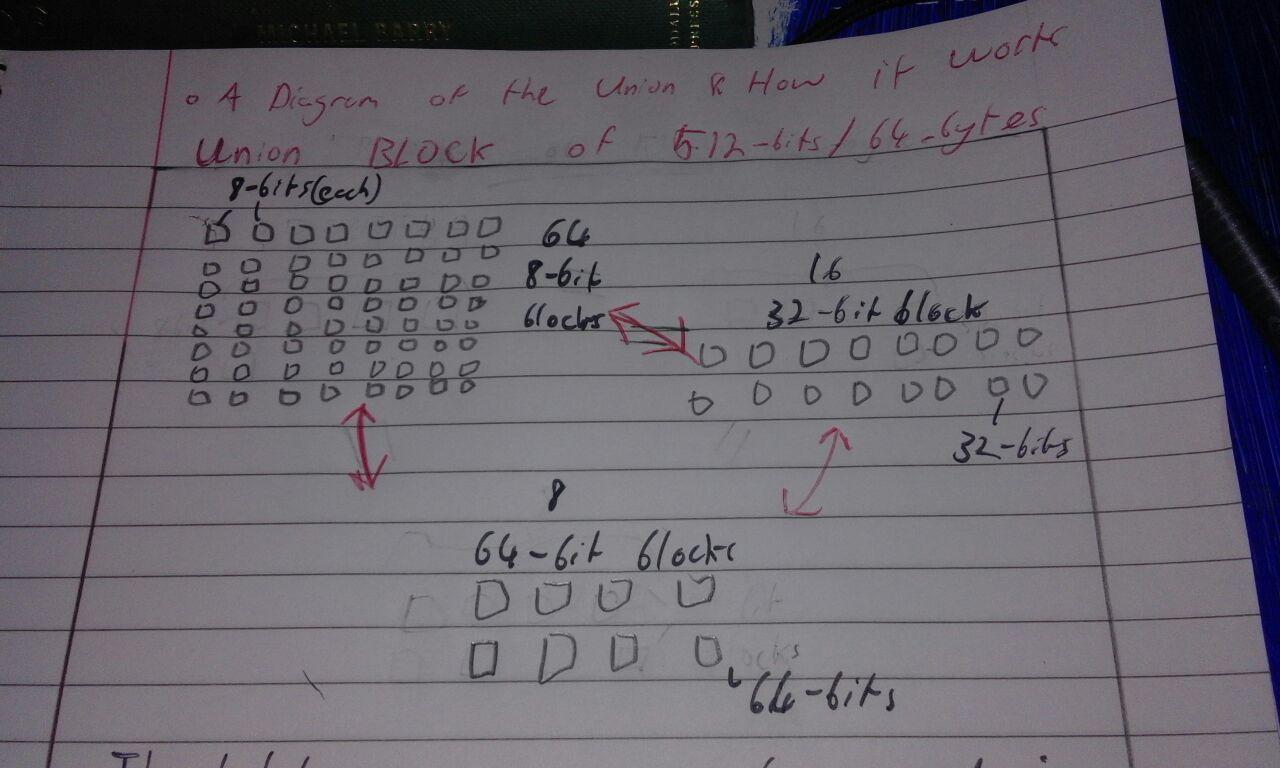 MICHAEL BARRY
o A Diagram of the Union & How it works
Union BLOCK of 512-bits/64-bytes
8-bits(each)
64
8-bit
blocks
16
32-bit block
32-bits
8
64-bit blocks
64-bits